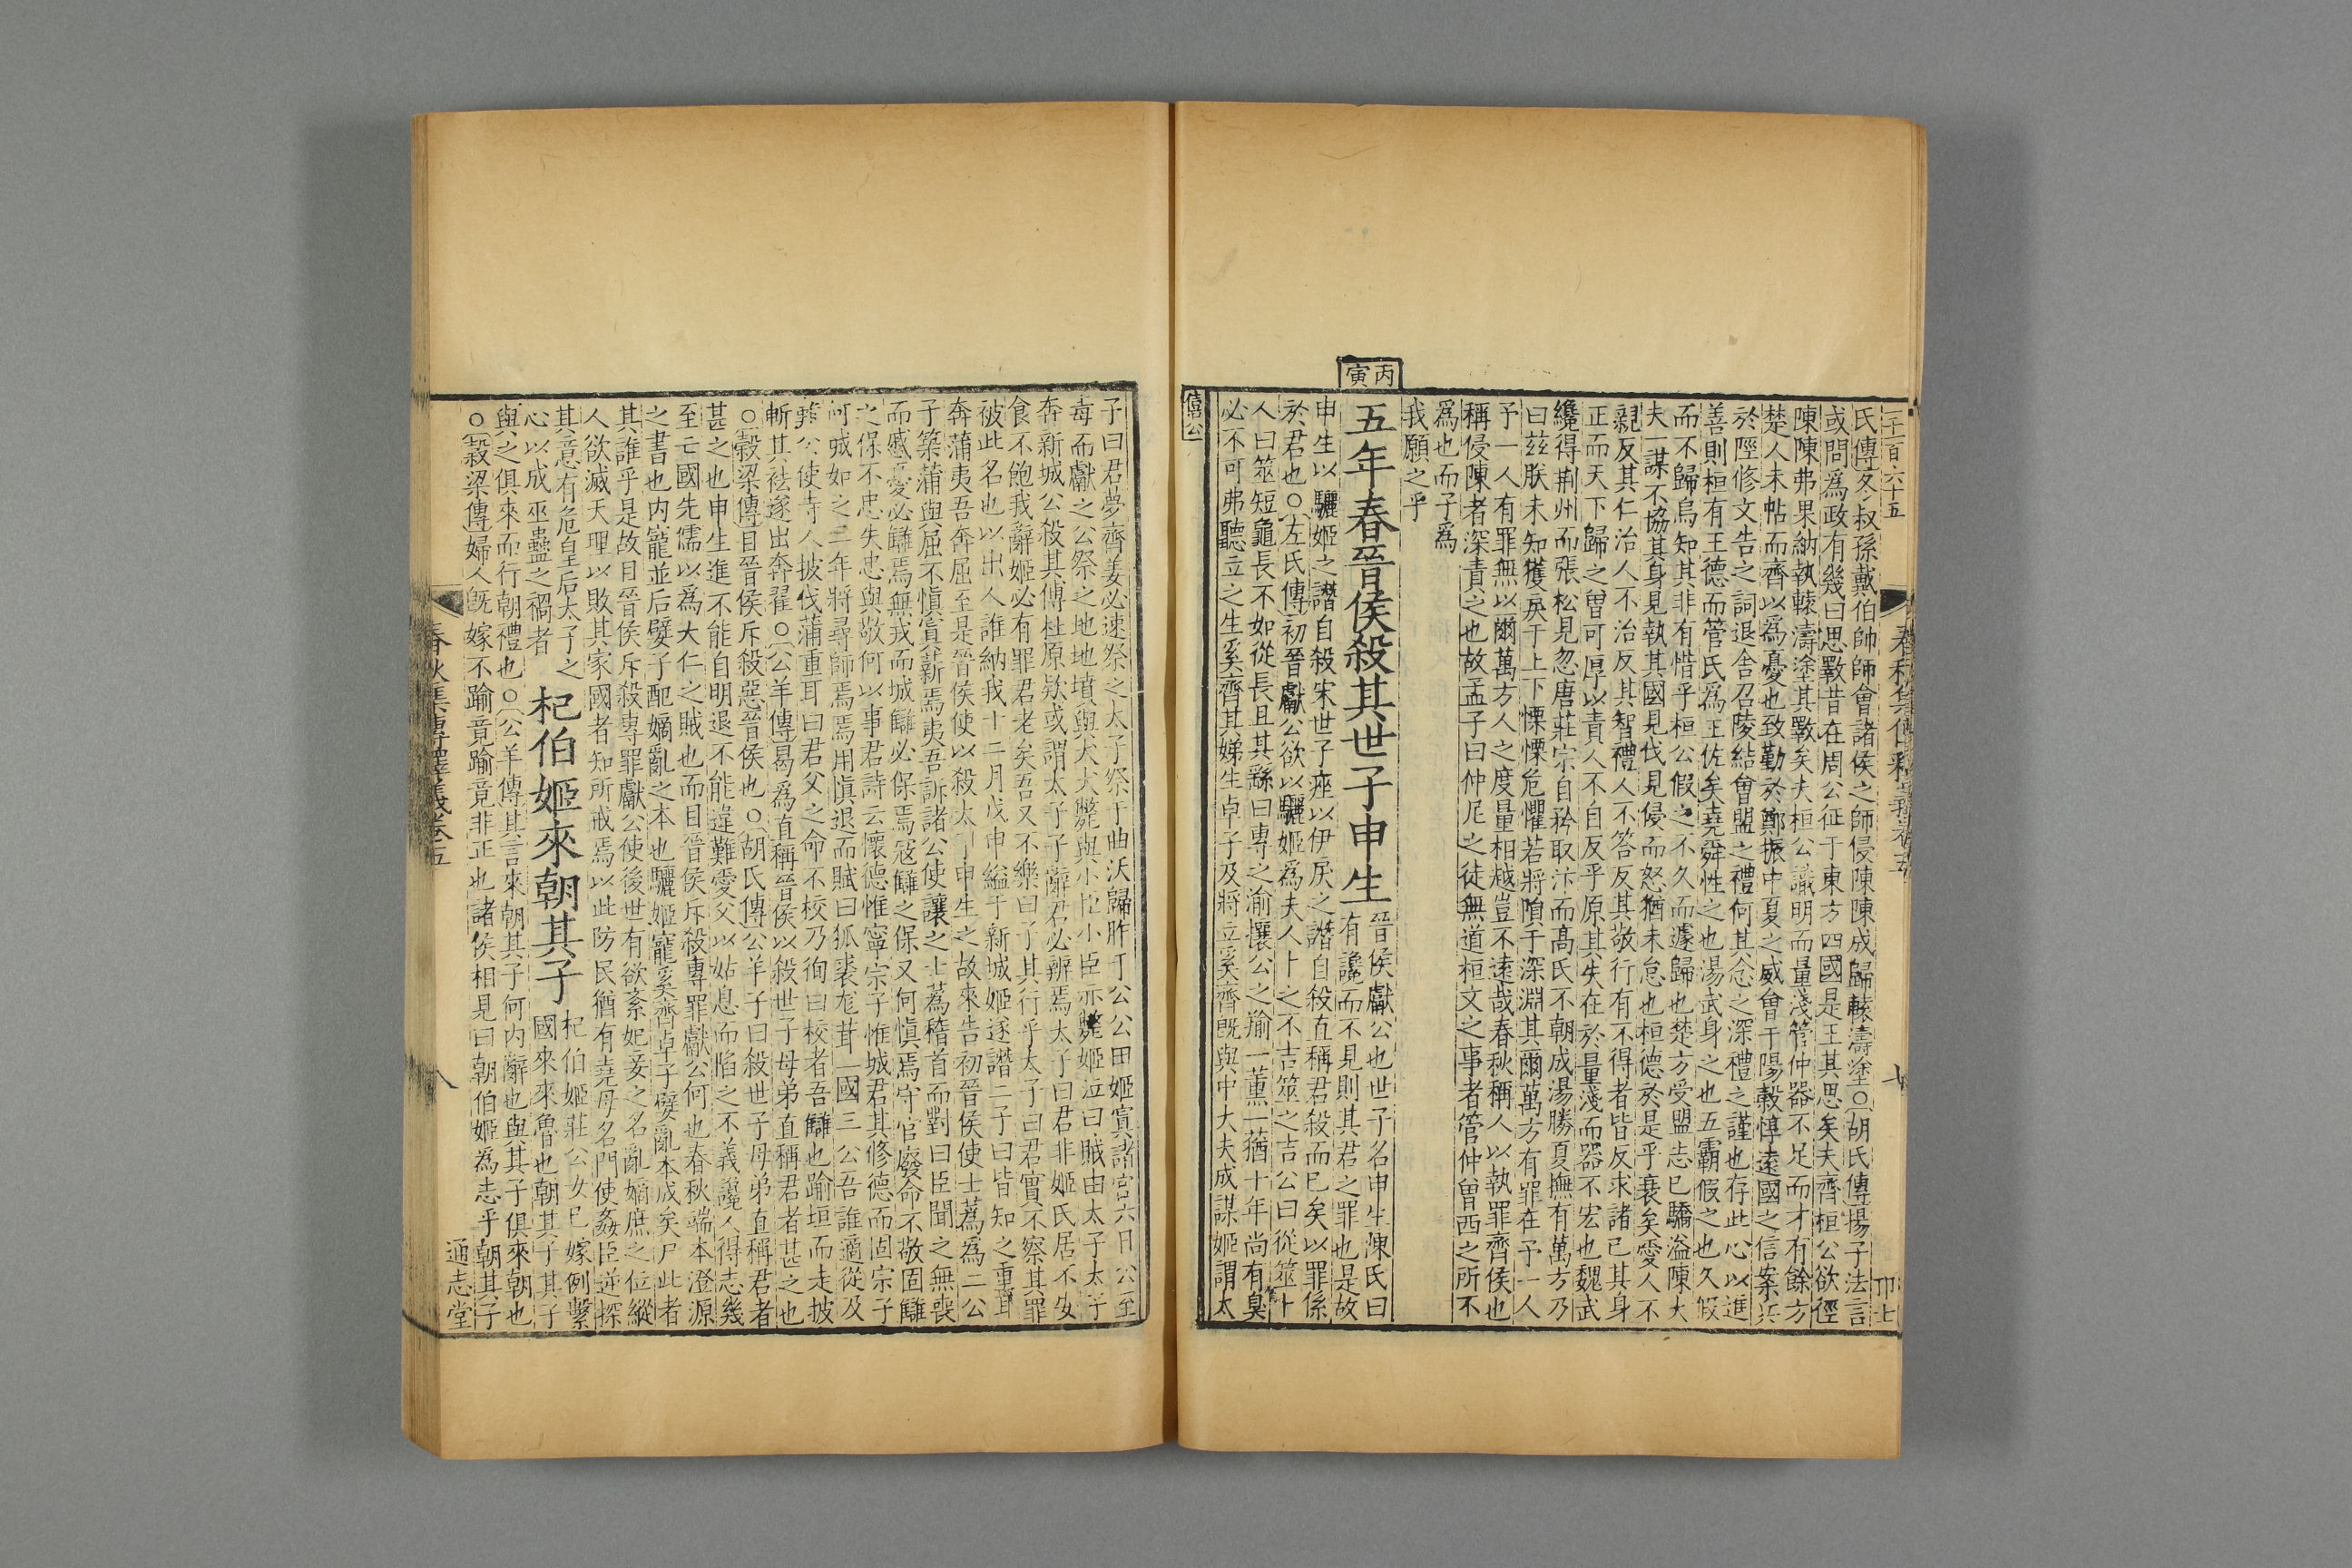 春秋集傳釋義卷五
氏傳冬叔孫戴伯帥師會諸侯之師侵陳陳成歸轅濤塗○胡氏傳揚子法言
或問為政有幾曰思斁昔在周公征于東方四國是王其思矣夫齊桓公欲徑
陳陳弗果納執轅濤塗其斁矣夫桓公識明而量淺管仲器不足而才有餘方
楚人未帖而齊以為憂也致勤於鄭振中夏之威會于陽穀惇遠國之信案兵
於陘修文告之詞退舍召陵結會盟之禮何其念之深禮之謹也存此心以進
善則桓有王德而管氏為王佐矣堯舜性之也湯武身之也五霸假之也久假
而不歸烏知其非有惜乎桓公假之不久而遽歸也楚方受盟志已驕溢陳大
夫一謀不協其身見執其國見伐見侵而怒猶未怠也桓德於是乎衰矣愛人不
親反其仁治人不治反其智禮人不答反其敬行有不得者皆反求諸己其身
正而天下歸之曾可厚以責人不自反乎原其失在於量淺而器不宏也魏武
纔得荆州而張松見忽唐莊宗自矜取汴而高氏不朝成湯勝夏撫有萬方乃
曰茲朕未知獲戾于上下慄慄危懼若將隕于深淵其爾萬方有罪在予一人
予一人有罪無以爾萬方人之度量相越豈不遠哉春秋稱人以執罪齊侯也
稱侵陳者深責之也故孟子曰仲尼之徒無道桓文之事者管仲曾西之所不
為也而子為
我願之乎
丙寅
五年春晉侯殺其世子申生
晉侯獻公也世子名申生陳氏曰
有讒而不見則其君之罪也是故
申生以驪姬之譖自殺宋世子痤以伊戾之譖自殺直稱君殺而已矣以罪係
於君也○左氏傳初晉獻公欲以驪姬為夫人卜之不吉筮之吉公曰從筮卜
人曰筮短龜長不如從長且其繇曰專之渝攘公之羭一薰一蕕十年尚有臭
必不可弗聽立之生奚齊其娣生卓子及將立奚齊既與中大夫成謀姬謂太
僖公
子曰君夢齊姜必速祭之太子祭于曲沃歸胙于公公田姬寘諸宮六日公至
毒而獻之公祭之地地墳與犬犬斃與小臣小臣亦斃姬泣曰賊由太子太子
奔新城公殺其傅杜原欵或謂太子子辭君必辨焉太子曰君非姬氏居不安
食不飽我辭姬必有罪君老矣吾又不樂曰子其行乎太子曰君實不察其罪
被此名也以出人誰納我十二月戊申縊于新城姬遂譖二子曰皆知之重耳
奔蒲夷吾奔屈至是晉侯使以殺太子申生之故來告初晉侯使士蒍為二公
子築蒲與屈不慎寘薪焉夷吾訴諸公使讓之士蒍稽首而對曰臣聞之無喪
而慼憂必讎焉無戎而城讎必保焉寇讎之保又何慎焉守官廢命不敬固讎
之保不忠失忠與敬何以事君詩云懷德惟寧宗子惟城君其修德而固宗子
何城如之三年將尋師焉焉用慎退而賦曰狐裘尨茸一國三公吾誰適從及
難公使寺人披伐蒲重耳曰君父之命不校乃徇曰校者吾讎也踰垣而走披
斬其袪遂出奔翟○公羊傳曷為直稱晉侯以殺世子母弟直稱君者甚之也
○穀梁傳目晉侯斥殺惡晉侯也○胡氏傳公羊子曰殺世子母弟直稱君者
甚之也申生進不能自明退不能違難愛父以姑息而陷之不義讒人得志幾
至亡國先儒以為大仁之賊也而目晉侯斥殺專罪獻公何也春秋端本澄源
之書也内寵並后嬖子配嫡亂之本也驪姬寵奚齊卓子嬖亂本成矣尸此者
其誰乎是故目晉侯斥殺專罪獻公使後世有欲紊妃妾之名亂嫡庶之位縱
人欲滅天理以敗其家國者知所戒焉以此防民猶有堯母名門使姦臣逆探
其意有危皇后太子之
心以成巫蠱之禍者
杞伯姬來朝其子
杞伯姬莊公女已嫁例繫
國來來魯也朝其子其子
與之俱來而行朝禮也○公羊傳其言來朝其子何内辭也與其子俱來朝也
○穀梁傳婦人既嫁不踰竟踰竟非正也諸侯相見曰朝伯姬為志乎朝其子
春秋集傳釋義卷五
八
通志堂